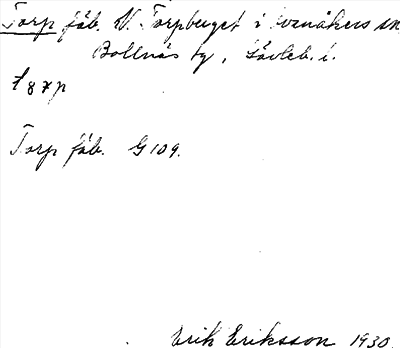 Torp fäb. V. Torpberget i Svenåkers sn
Bollnäs tg, Gävleb. l.
Torp fäb. G 109.
Erik Eriksson 1930.